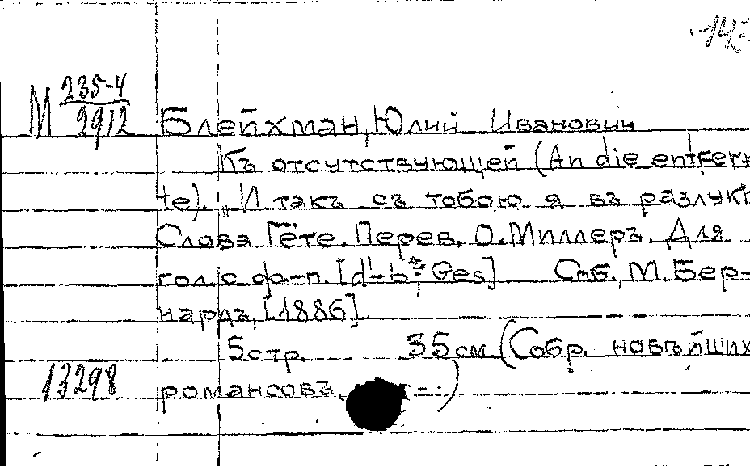 М 235-4
2912
Блейхман, Юлий Иванович
Къ отсутствующей (An die entfern
te). „И такъ съ тобою я въ разлукѣ
Слова Гёте. Перев. О. Миллеръ. Для
гол. с ф-п. [d¹-b²: Ges] Спб., М. Бер-
нардъ, [1886].
5 стр. 35 см (Собр. новѣйших
13298
романсовъ,